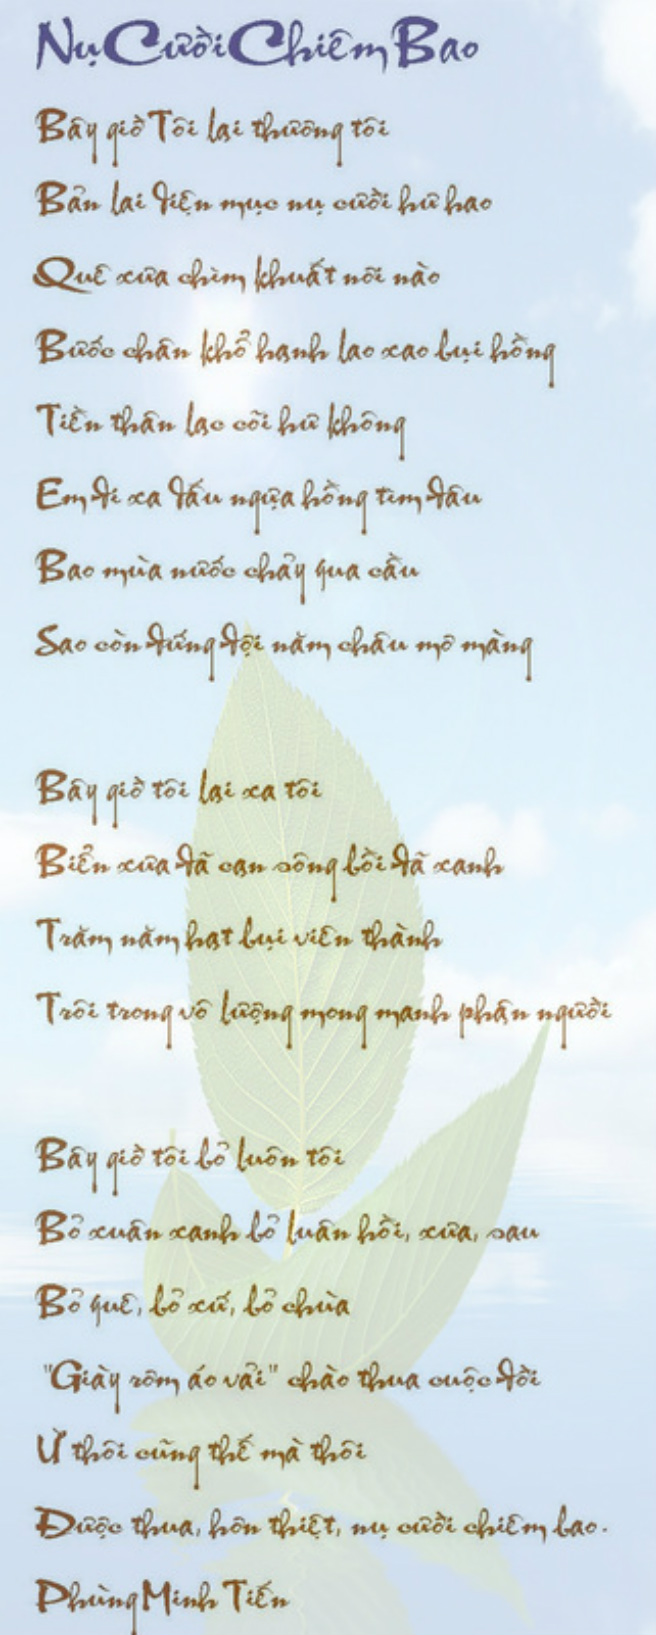 Nụ Cười Chiêm Bao
Bây giờ Tôi lại thương tôi
Bản lai diện mục nụ cười hư hao
Quê xưa chìm khuất nơi nào
Bước chân khổ hạnh lao xao bụi hồng
Tiền thân lạc cõi hư không
Em đi xa dấu ngựa hồng tìm đâu
Bao mùa nước chảy qua cầu
Sao còn đứng đợi năm châu mơ màng
Bây giờ tôi lại xa tôi
Biển xưa đã cạn sông bồi đã xanh
Trăm năm hạt bụi viên thành
Trôi trong vô lượng mong manh phận người
Bây giờ tôi bỏ luôn tôi
Bỏ xuân xanh bỏ luân hồi, xưa, sau
Bỏ quê, bỏ xứ, bỏ chùa
"Giày rơm áo vải" chào thua cuộc đời
Ừ thôi cũng thế mà thôi
Được thua, hơn thiệt, nụ cười chiêm bao.
Phùng Minh Tiến